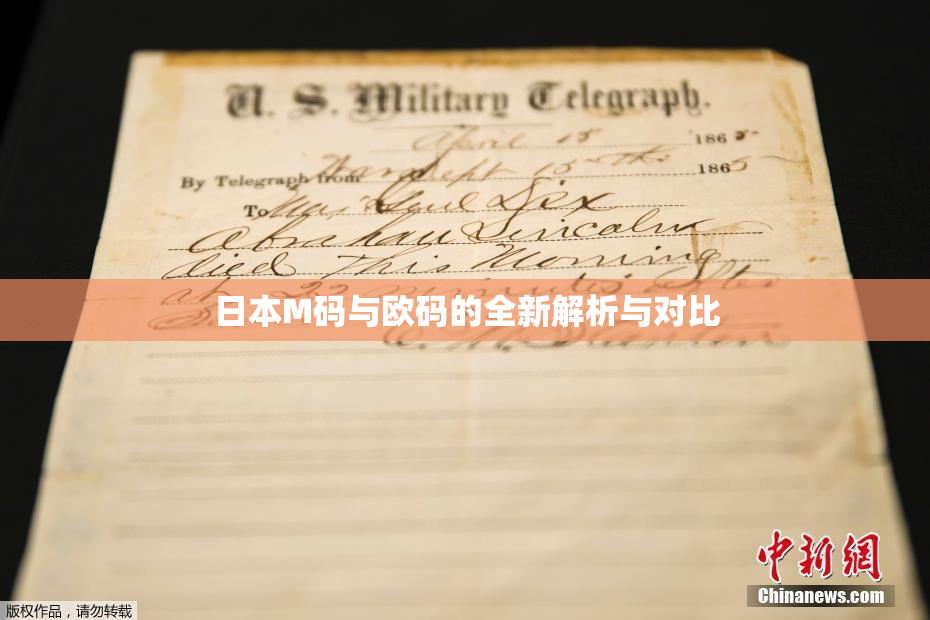 U. S. Military Telegraph.
April 15 1865
By Telegraph from War Dept 15 1865
To Maj Genl Dix
Abraham Lincoln
died This Morning
at 22 minutes after
日本M码与欧码的全新解析与对比
中新网
Chinanews.com
版权作品，请勿转载